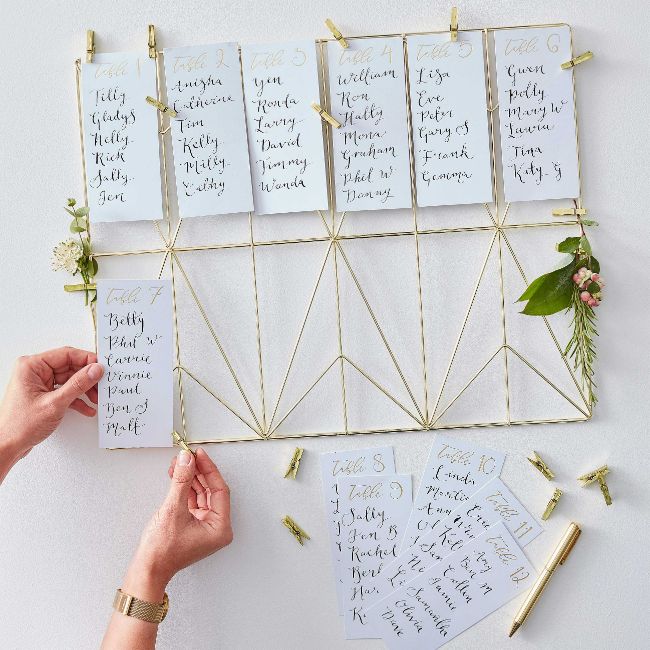 Table 1
Tilly
Gladys
Nelly
Rick
Sally
Jen
Table 2
Anisha
Catherine
Tim
Kelly
Milly
Cathy
Table 3
Yen
Ronda
Larry
David
Timmy
Wanda
Table 4
William
Ron
Hally
Mona
Graham
Phil W
Danny
Table 5
Lisa
Eve
Peter
Gary S
Frank
Gemma
Table 6
Gwen
Polly
Mary W
Laura
Tina
Katy G
Table 7
Betty
Phil W
Carrie
Vinnie
Paul
Ben J
Matt
Table 8
Table 9
Sally
Jen B
Rachel
Table 10
Linda
Table 11
Table 12
Amy
Ben M
Cullen
Jamie
Samantha
Olivia
Dave